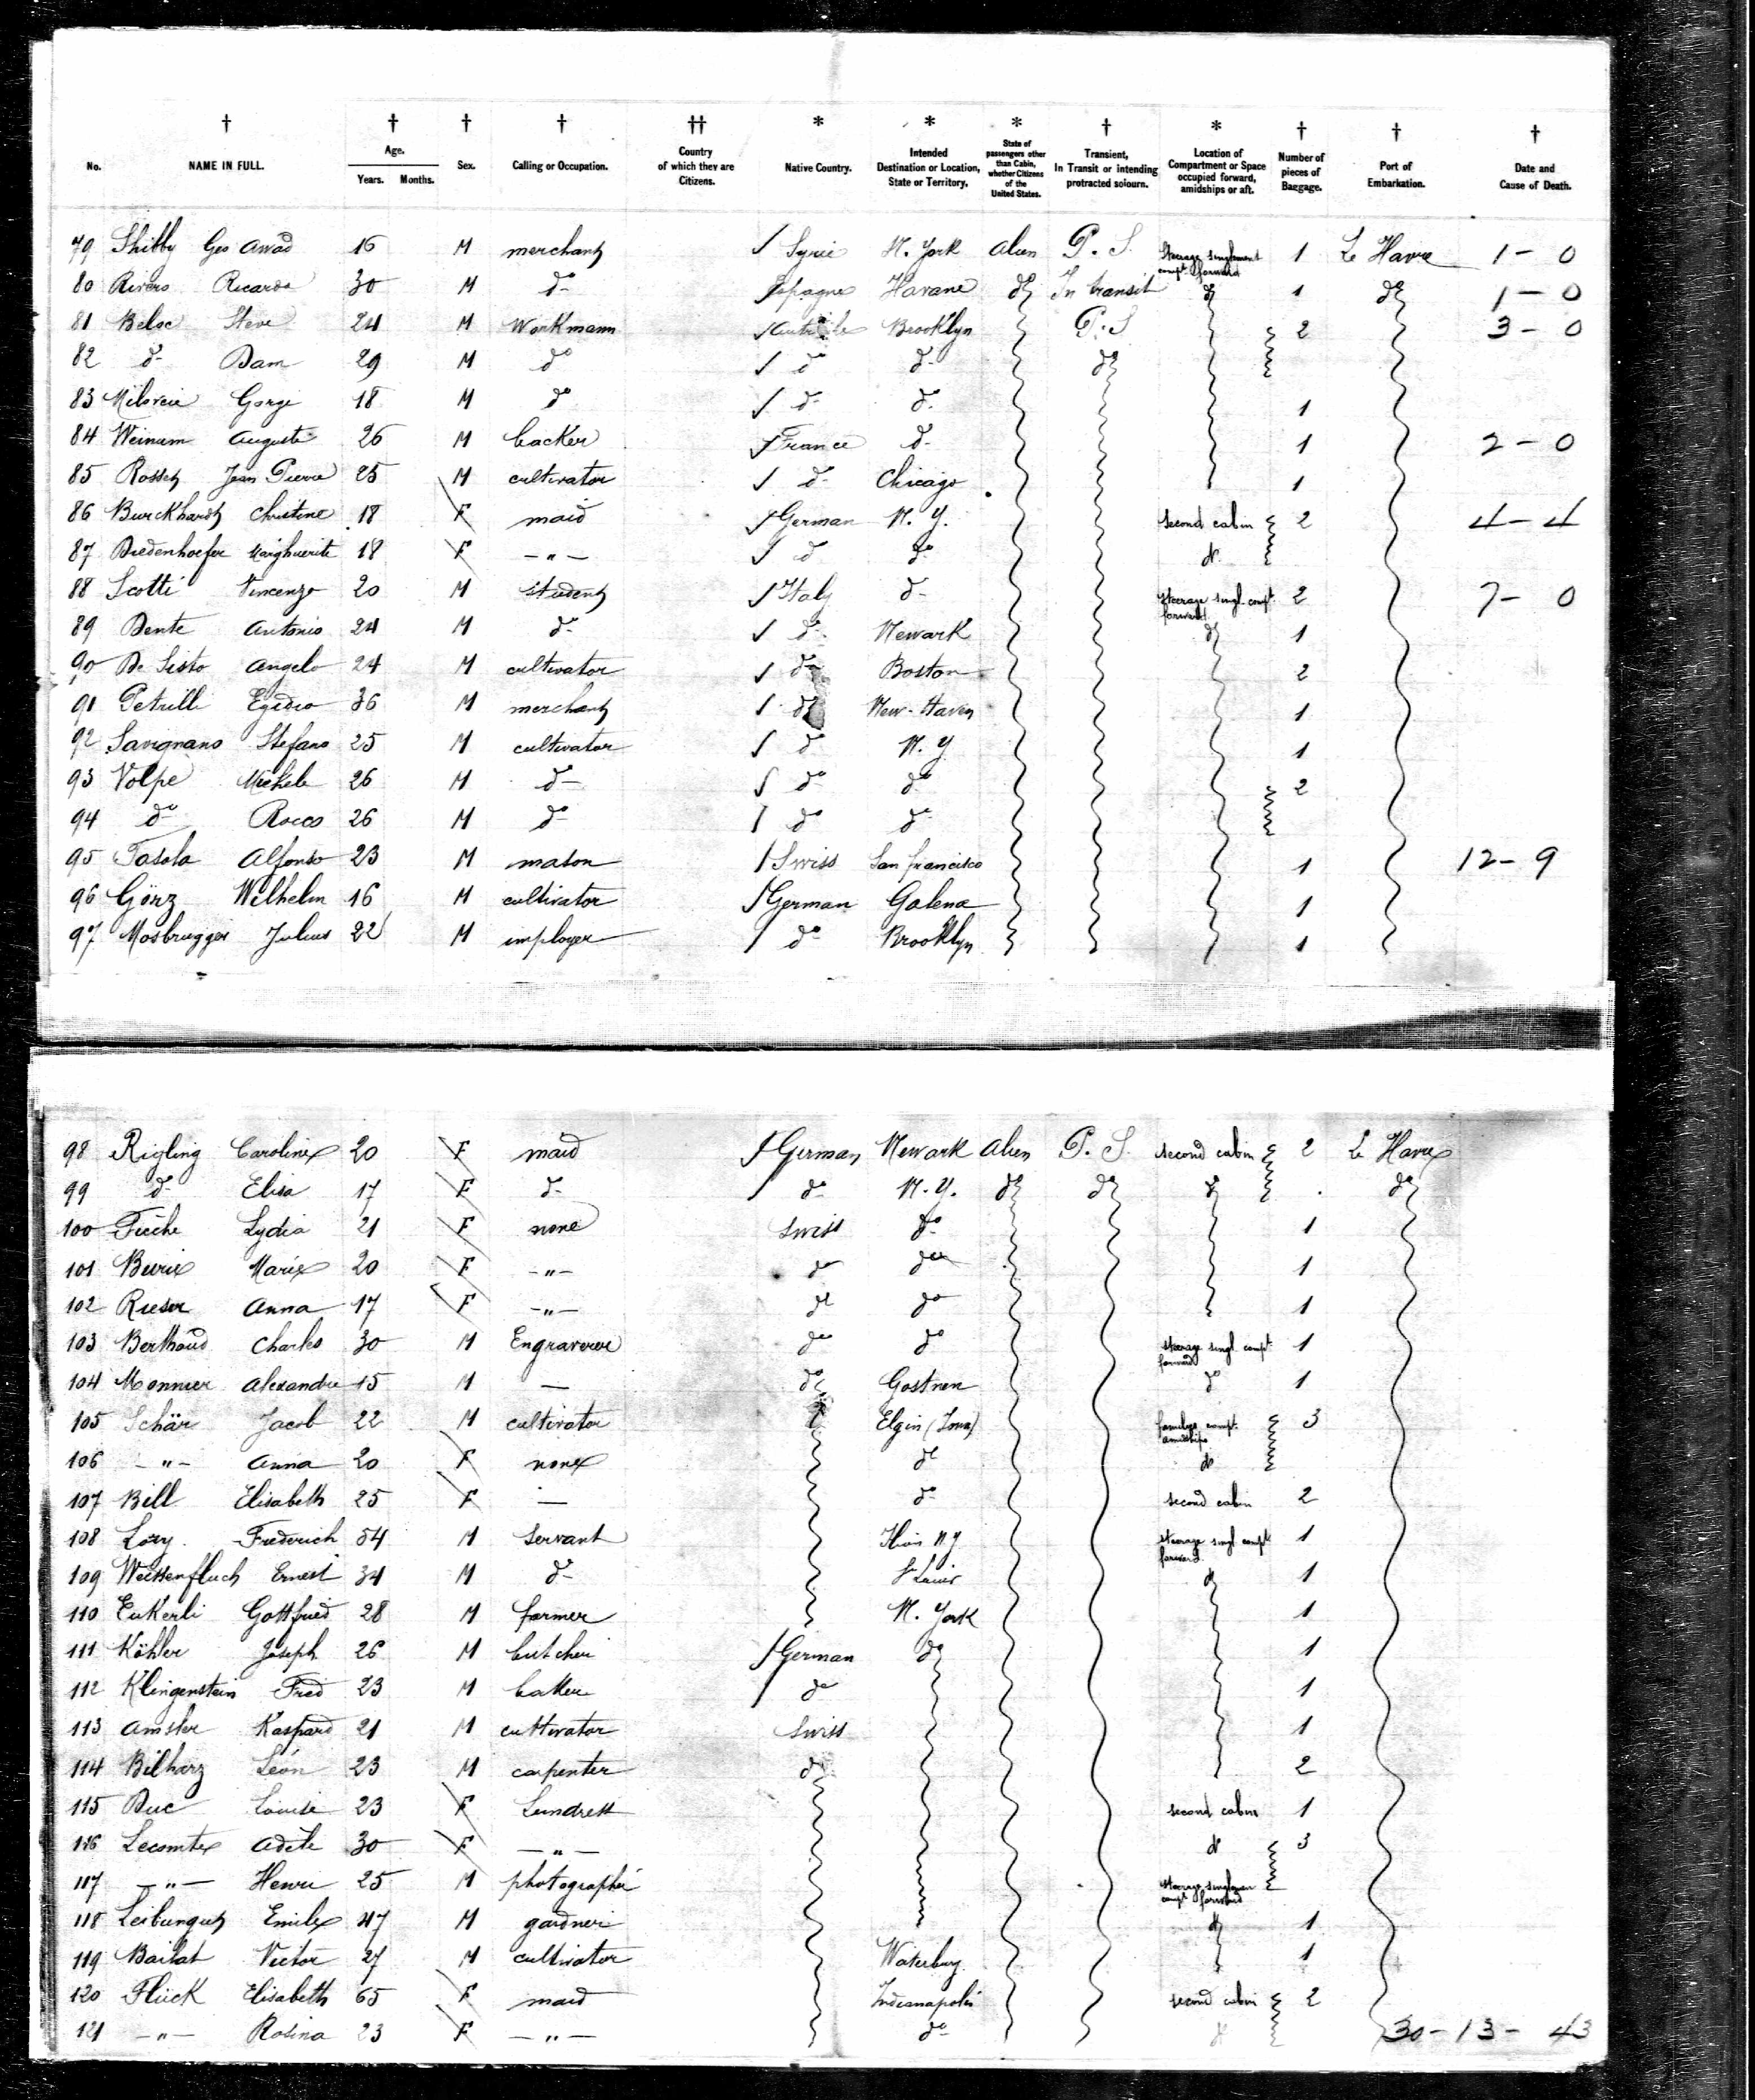 No. NAME IN FULL. Age. Years. Months. Sex. Calling or Occupation. Country of which they are Citizens. Native Country. Intended Destination or Location, State or Territory. State of passengers other than Cabin, whether Citizens of the United States. Transient, In Transit or intending protracted sojourn. Location of Compartment or Space occupied forward, amidships or aft. Number of pieces of Baggage. Port of Embarkation. Date and Cause of Death.
79 Shibby Geo Awad 16 M merchant Syrie N. York alien P. S. Steerage singlement compt forward 1 Le Havre 1 - 0
80 Rivero Ricardo 30 M do Espagne Havane do In transit do 1 do 1 - 0
81 Beloc Steve 24 M Workmann Brooklyn P. S 2 3 - 0
82 do Dam 29 M do do do do
83 Gorge 18 M do do do 1
84 Weinum Auguste 26 M backer France do 1 2 - 0
85 Rossetz Jean Pierre 25 M cultivator do Chicago 1
86 Burckhardt Christine 18 F maid German N. Y. second cabin 2 4 - 4
87 Diedenhoefer Marghuerite 18 F - " - do do do
88 Scotti Vincenzo 20 M student Italy do steerage singl. compt. forward 2 7 - 0
89 Dente Antonio 24 M do do Newark do 1
90 De Sisto Angelo 24 M cultivator do Boston 2
91 Petrilli Egidio 36 M merchant do New-Haven 1
92 Savignano Stefano 25 M cultivator do N. Y 1
93 Volpe Michele 26 M do do do 2
94 do Rocco 26 M do do do
95 Tasola Alfonso 23 M mason Swiss San francisco 1 12 - 9
96 Görz Wilhelm 16 M cultivator German Galena 1
97 Mosbrugger Julius 22 M employer do Brooklyn 1
98 Rigling Caroline 20 F maid German Newark alien P. S. second cabin 2 Le Havre
99 do Elisa 17 F do do N. Y. do do do do
100 Lydia 21 F none Swiss do 1
101 Burie Marie 20 F - " - do do 1
102 Rieser Anna 17 F - " - do do 1
103 Berthoud Charles 30 M Engraverer do do steerage singl. compt. forward 1
104 Monnier Alexandre 15 M — do Gostnen do 1
105 Schär Jacob 22 M cultivator Elgin (Iowa) familys compt. amidships 3
106 - " - Anna 20 F none do do
107 Bill Elisabeth 25 F — do second cabin 2
108 Lory Frederich 54 M Servant Ilion N Y steerage singl compt forward. 1
109 Weissenfluch Ernest 34 M do St Louis do 1
110 Eukerli Gottfried 28 M farmer N. York 1
111 Köhler Joseph 26 M butcher German do 1
112 Klingenstein Fred 23 M baker do 1
113 Amsler Kaspard 21 M cultivator Swiss 1
114 Bilharz Léon 23 M carpenter do 2
115 Duc Louise 23 F Lundress second cabin 1
116 Lecomte Adèle 30 F - " - do 3
117 - " - Henri 25 M photographer Steerage singlemen compt forward
118 Leibungutz Emile 47 M gardner do 1
119 Bailat Victor 27 M cultivator Waterbury 1
120 Flück Elisabeth 65 F maid Indianapolis second cabin 2
121 - " - Rosina 23 F - " - do do 30 - 13 - 43